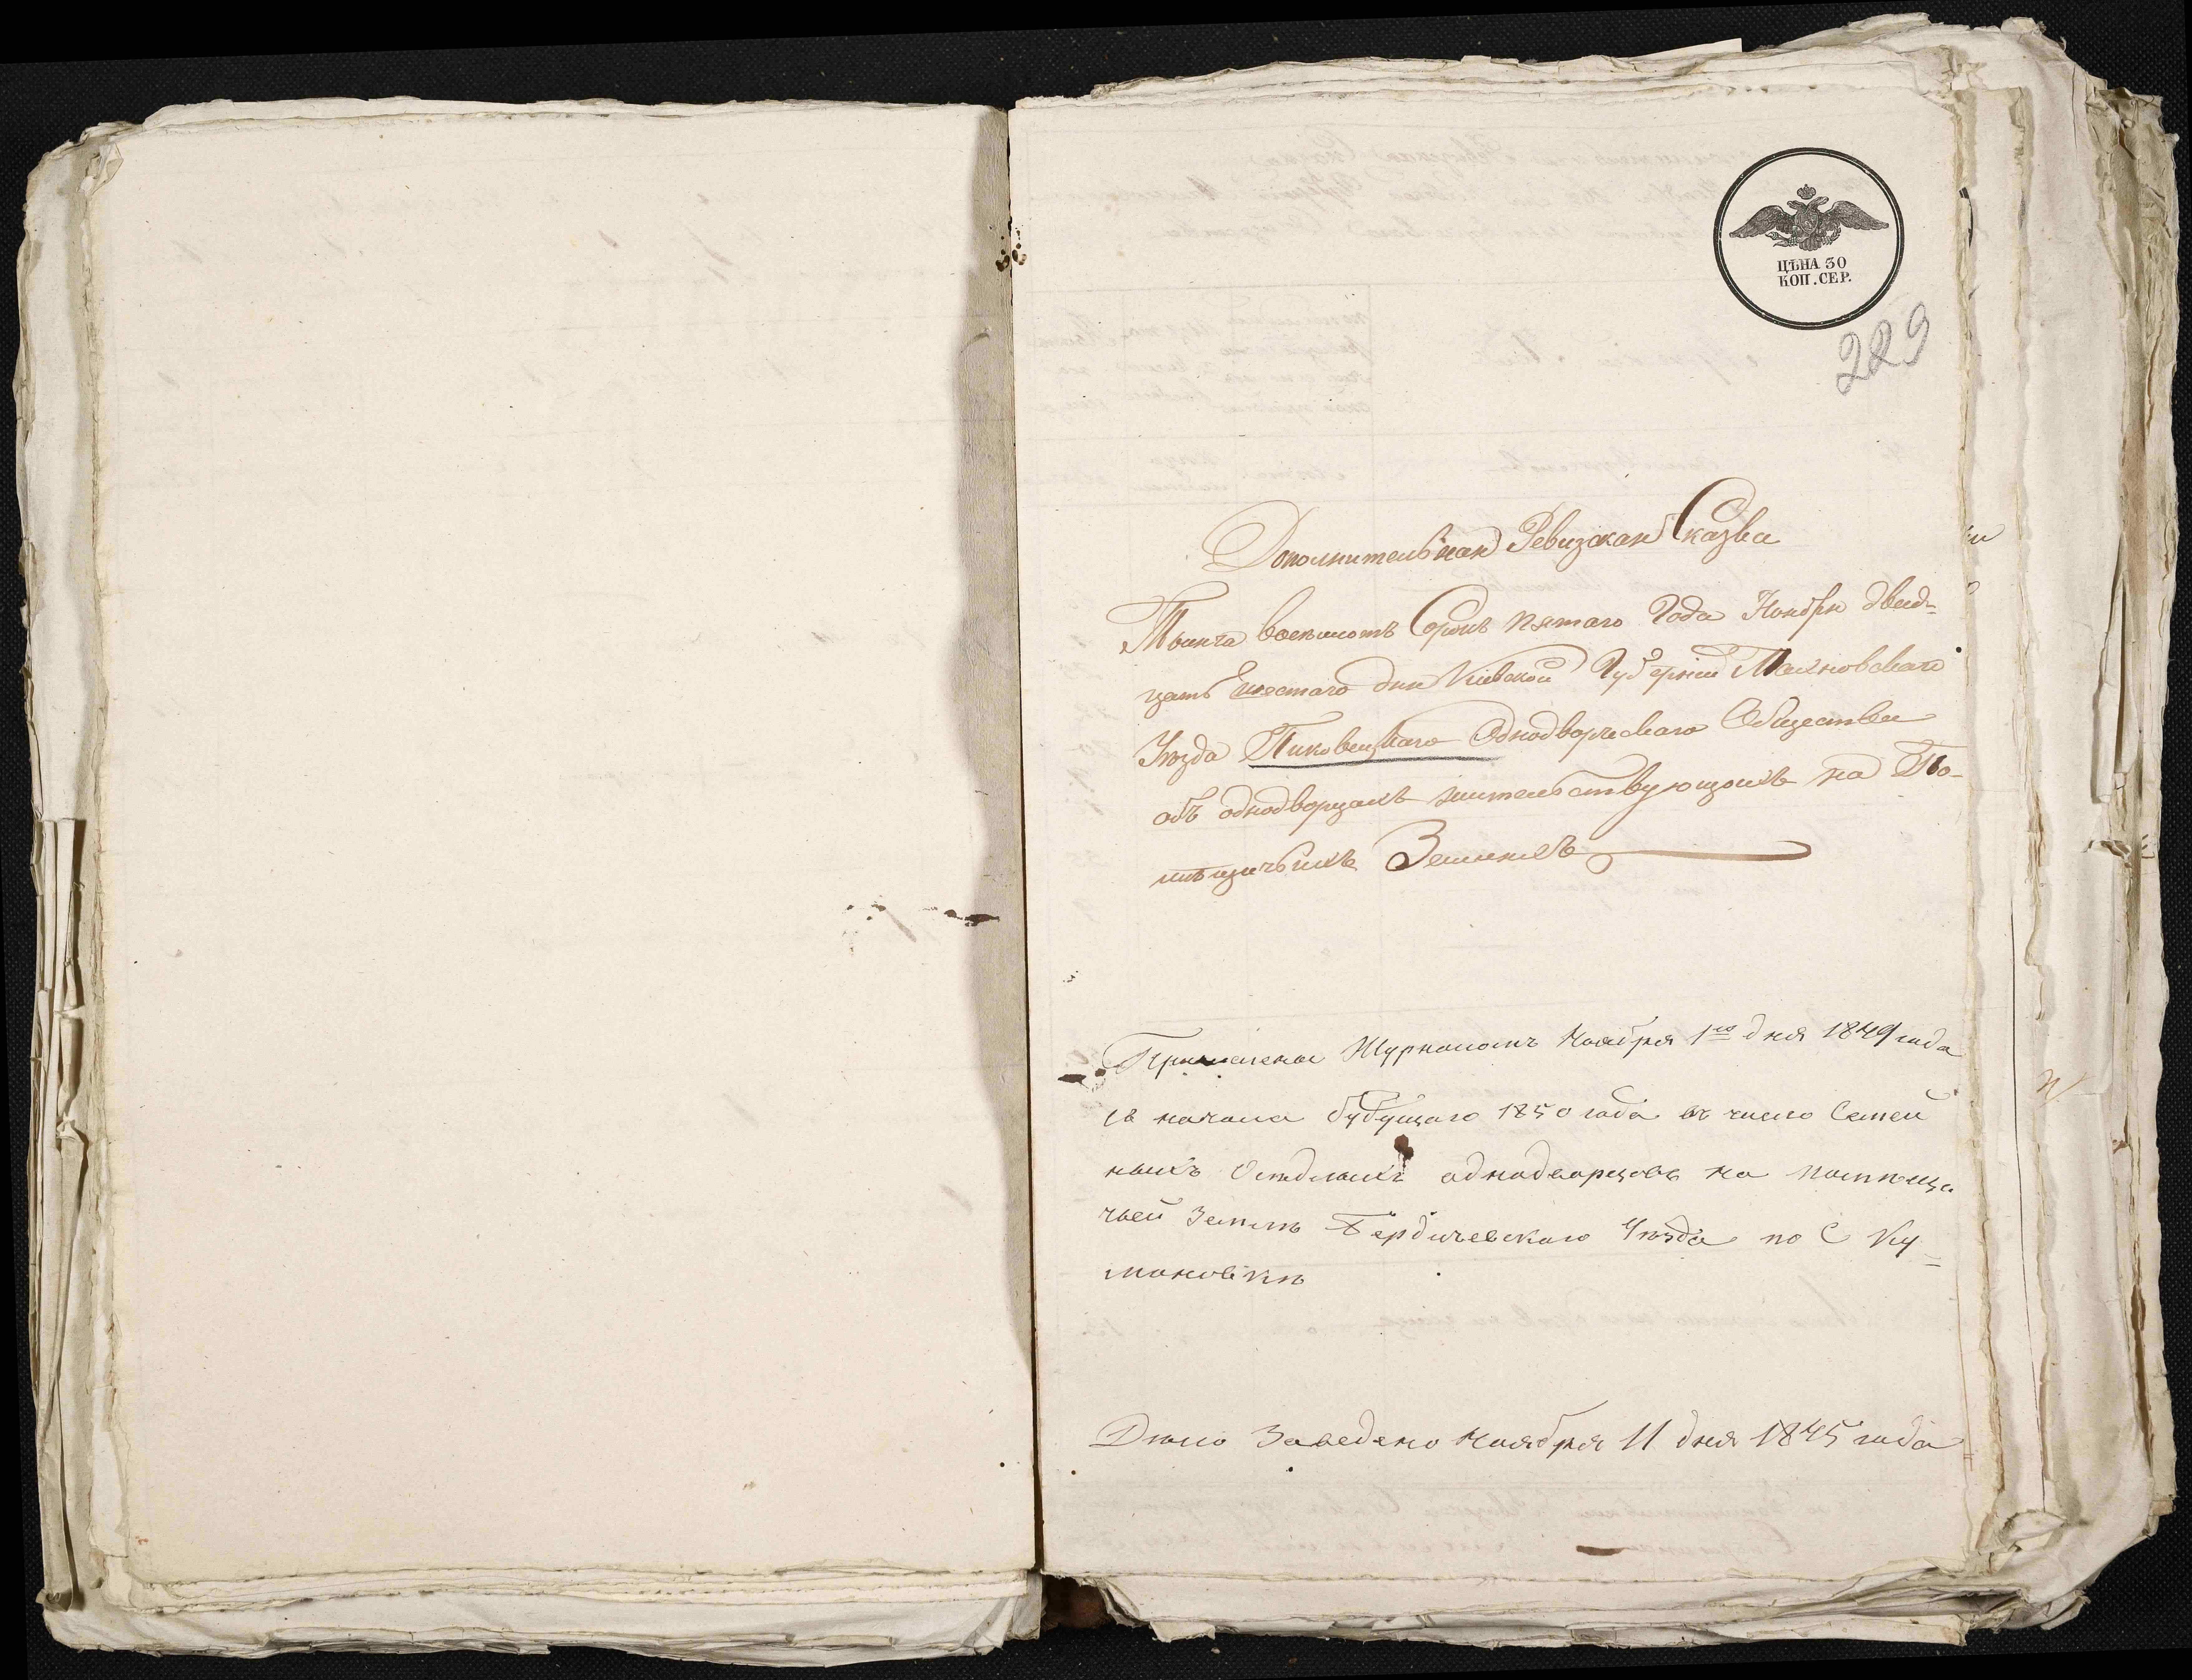 ЦѢНА 30
КОП. СЕР.
229
Дополнительная Ревизская Сказка
Тысяча восемьсотъ Сорокъ пятаго Года Ноября двад-
цать шестаго дня Кіевской Губерніи Махновскаго
Уѣзда Пиковецкаго Однодворческаго Общества
объ однодворцахъ жительствующихъ на По-
мѣщичьихъ Земляхъ
Причислены Журналомъ Ноября 1го дня 1849 года
съ начала будущаго 1850 года въ число Семей
ныхъ Осѣдлыхъ однодворцовъ на помѣщи
чьей Землѣ Бердичевскаго Уѣзда по С Ку-
мановкѣ
Дѣло Заведено Ноября 11 дня 1845 года